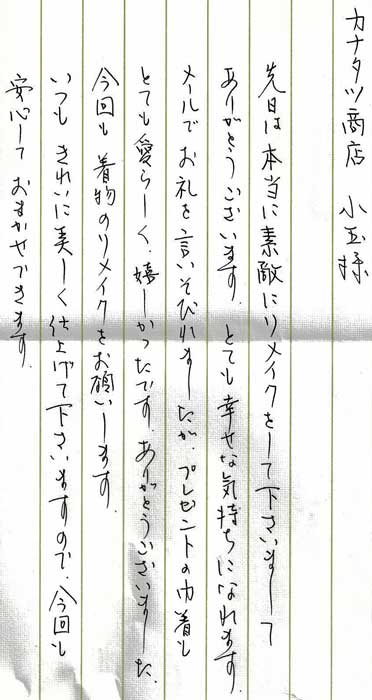 カナタツ商店 小玉様
先日は本当に素敵にリメイクをして下さいまして
ありがとうございます。とても幸せな気持ちになれます。
メールでお礼を言いそびれましたが、プレゼントの巾着も
とても愛らしく、嬉しかったです。ありがとうございました。
今回も着物のリメイクをお願いします。
いつもきれいに美しく仕上げて下さいますので、今回も
安心しておまかせできます。